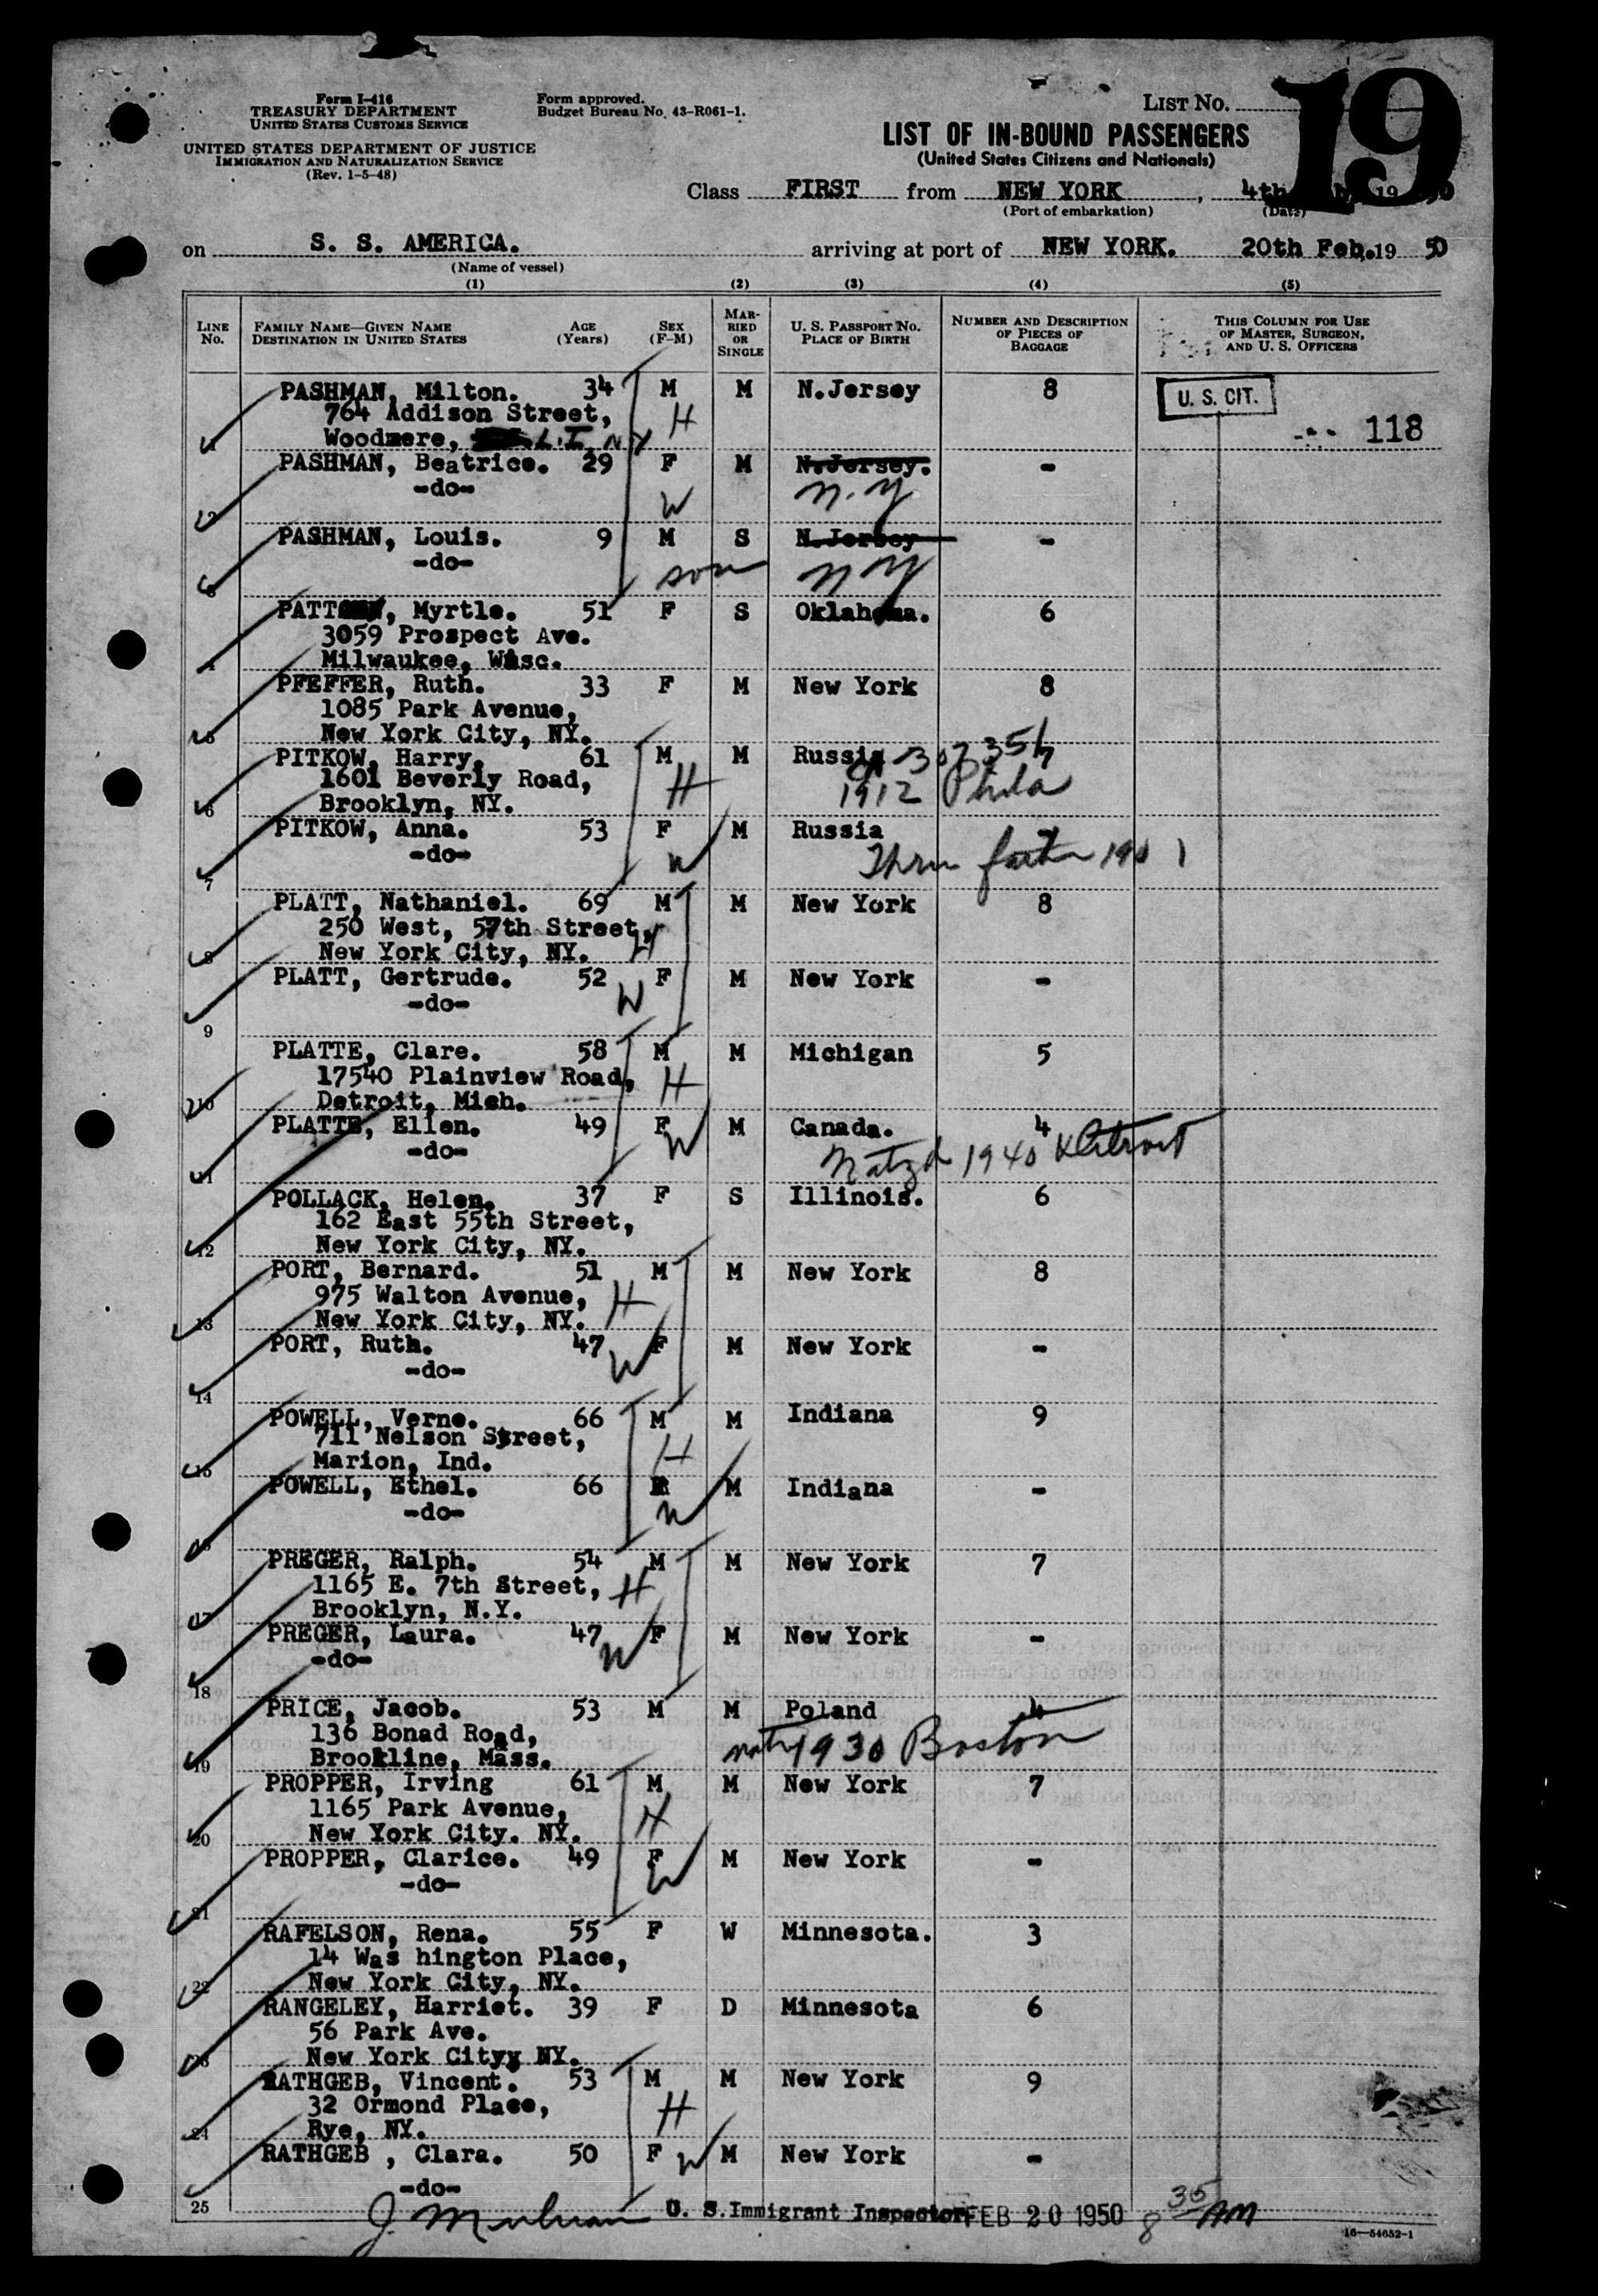 Form I-416
TREASURY DEPARTMENT
UNITED STATES CUSTOMS SERVICE
UNITED STATES DEPARTMENT OF JUSTICE
IMMIGRATION AND NATURALIZATION SERVICE
(Rev. 1-5-48)
Form approved.
Budget Bureau No. 43-R061-1.
LIST NO. 19
LIST OF IN-BOUND PASSENGERS
(United States Citizens and Nationals)
Class FIRST from NEW YORK, 4th 19 50
(Port of embarkation) (Date)
on S. S. AMERICA. arriving at port of NEW YORK. 20th Feb. 19 50
(Name of vessel)
(1) (2) (3) (4) (5)
LINE NO. FAMILY NAME—GIVEN NAME DESTINATION IN UNITED STATES AGE (Years) SEX (F-M) MARRIED OR SINGLE U. S. PASSPORT NO. PLACE OF BIRTH NUMBER AND DESCRIPTION OF PIECES OF BAGGAGE THIS COLUMN FOR USE OF MASTER, SURGEON, AND U. S. OFFICERS
PASHMAN, Milton. 34 M M N.Jersey 8 U. S. CIT.
764 Addison Street, H
1 Woodmere, L.I. NY 118
PASHMAN, Beatrice. 29 F M N.Jersey. -
-do- W N.Y
2
PASHMAN, Louis. 9 M S N.Jersey -
-do- son NY
3
PATT, Myrtle. 51 F S Oklahoma. 6
3059 Prospect Ave.
4 Milwaukee, Wisc.
PFEFFER, Ruth. 33 F M New York 8
1085 Park Avenue,
5 New York City, NY.
PITKOW, Harry. 61 M M Russia 7
1601 Beverly Road, H 1912 Phila
6 Brooklyn, NY.
PITKOW, Anna. 53 F M Russia
-do- W Thru father 1901
7
PLATT, Nathaniel. 69 M M New York 8
250 West, 57th Street, H
8 New York City, NY.
PLATT, Gertrude. 52 F M New York -
-do- W
9
PLATTE, Clare. 58 M M Michigan 5
17540 Plainview Road, H
10 Detroit, Mich.
PLATTE, Ellen. 49 F W M Canada. 4
-do- Natzd 1940 Detroit
11
POLLACK, Helen. 37 F S Illinois. 6
162 East 55th Street,
12 New York City, NY.
PORT, Bernard. 51 M M New York 8
975 Walton Avenue, H
13 New York City, NY.
PORT, Ruth. 47 W F M New York -
-do-
14
POWELL, Verne. 66 M M Indiana 9
711 Nelson Street, H
15 Marion, Ind.
POWELL, Ethel. 66 F M Indiana -
-do- W
16
PREGER, Ralph. 54 M M New York 7
1165 E. 7th Street, H
17 Brooklyn, N.Y.
PREGER, Laura. 47 W F M New York -
-do-
18
PRICE, Jacob. 53 M M Poland 4
136 Bonad Road, natz 1930 Boston
19 Brookline, Mass.
PROPPER, Irving 61 M M New York 7
1165 Park Avenue, H
20 New York City. NY.
PROPPER, Clarice. 49 F M New York -
-do- W
21
RAFELSON, Rena. 55 F W Minnesota. 3
14 Was hington Place,
22 New York City, NY.
RANGELEY, Harriet. 39 F D Minnesota 6
56 Park Ave.
23 New York Cityy NY.
RATHGEB, Vincent. 53 M M New York 9
32 Ormond Place, H
24 Rye, NY.
RATHGEB , Clara. 50 F W M New York -
-do-
25 U. S. Immigrant Inspector FEB 20 1950 8 35 AM
16-54652-1